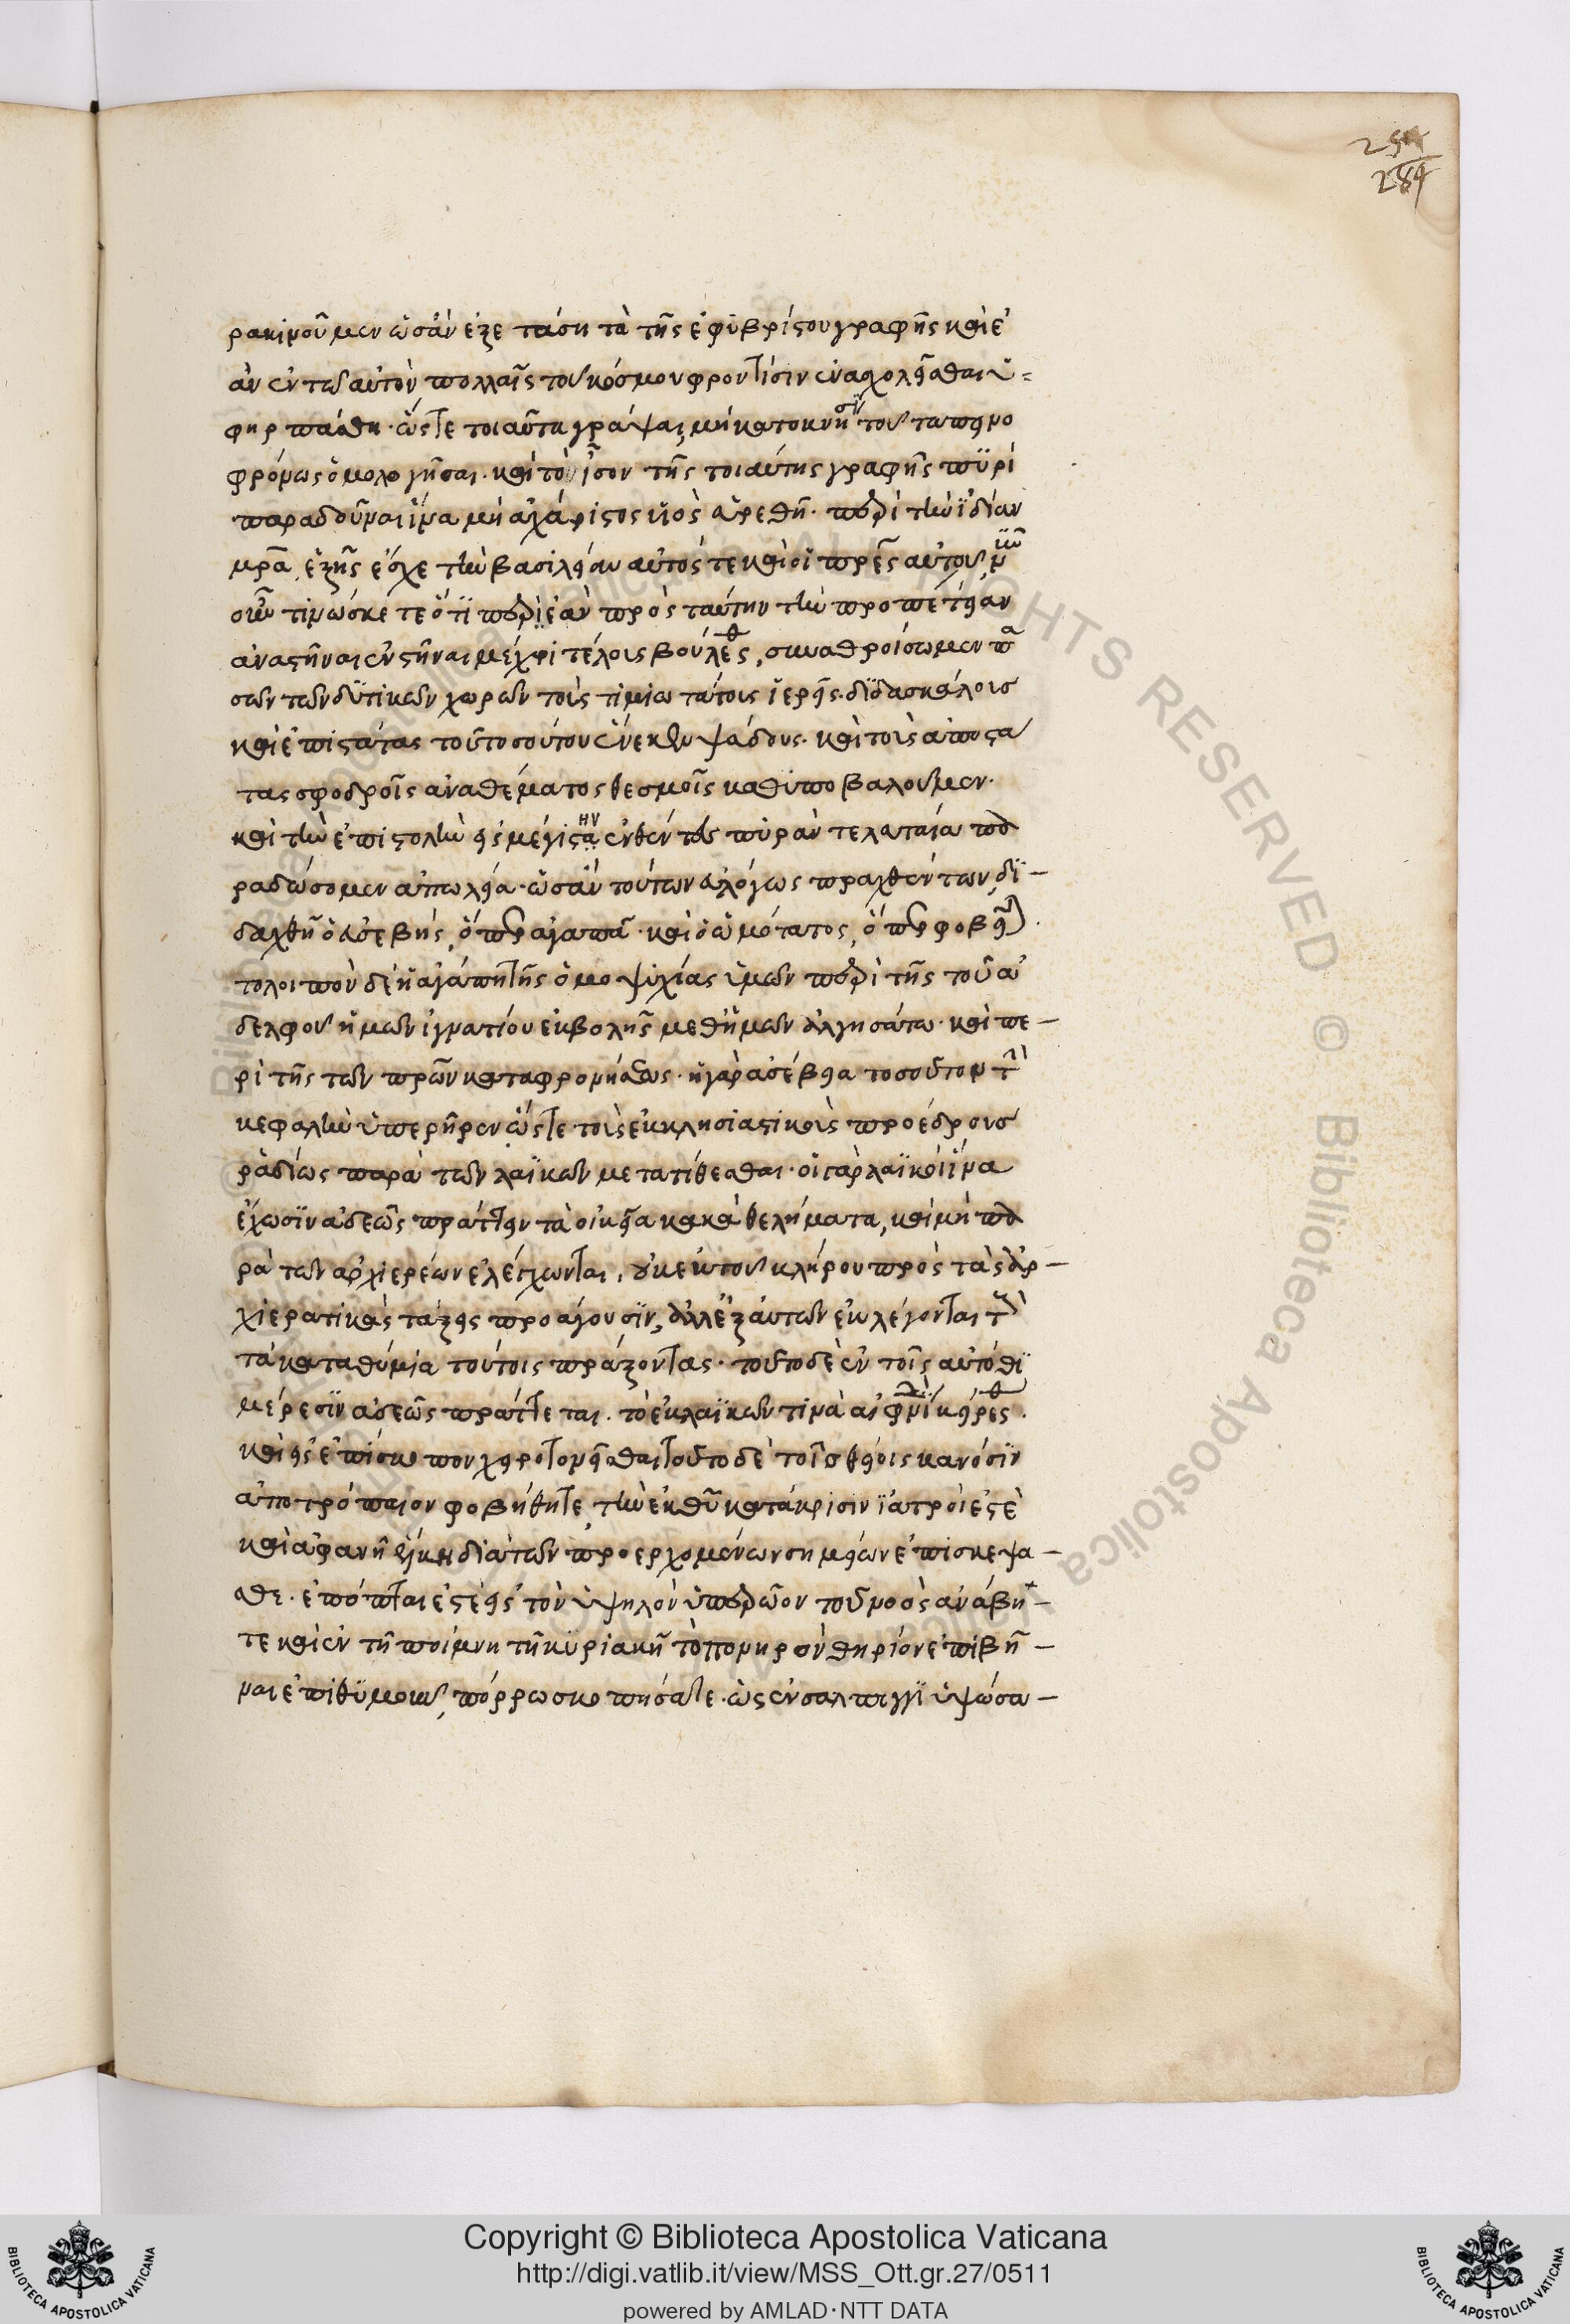 254
284
ρακινοῦμεν ὡσὰν ἐξετάση τὰ τῆς ἐφυβρίστου γραφῆς καὶ ἐ
ὰν ἐν τῶ αὐτὸν πολλαῖς τοῦ κόσμου φροντίσιν ἐνασχολεῖσθαι ὑ
φηρπάσθη· ὥστε τοιαῦτα γράψαι, μὴ κατοκνήση τοῦ ταπεινο
φρόνως ὁμολογῆσαι. καὶ τὸ ἶσον τῆς τοιαύτης γραφῆς πυρὶ
παραδοῦναι ἵνα μὴ ἀχάριστος υἱὸς εὑρεθῆ. περὶ τὴν ἰδίαν
μρα ἐξῆς ἔσχε τὴν βασιλείαν αὐτός τε καὶ οἱ πρες αὐτοῦ
γινώσκετε ὅτι περ ἐὰν πρὸς ταύτην τὴν προπέτειαν
ἀναστῆναι ἐνστῆναι μέχρι τέλους βούλεσθε, συναθροίσωμεν πα
σῶν τῶν δυτικῶν χωρῶν τοὺς τιμιωτάτους ἱερεῖς. διδασκάλους
καὶ ἐπιστάτας τοῦ τοσούτου ἕνεκεν ψεύδους. καὶ τοὺς ἀποστά
τας σφοδροῖς ἀναθέματος θεσμοῖς καθυποβαλοῦμεν.
καὶ τὴν ἐπιστολὴν εἰς μεγίστην ἐνθέντες πυρὰν τελευταία πα
ραδώσομεν ἀπωλεία. ὡσὰν τούτων εὐλόγως πραχθέντων, δι
δαχθῆ ὁ εὐσεβὴς, ὅπερ ἀγαπᾶ. καὶ ὁ ὠμότατος, ὅπερ φοβεῖται.
τολοιπὸν δὲ ἡ ἀγάπη τῆς ὁμοψυχίας ὑμῶν περὶ τῆς τοῦ ἀ
δελφοῦ ἡμῶν ἰγνατίου ἐκβολῆς μεθ' ἡμῶν ἀλγησάτω. καὶ πε
ρὶ τῆς τῶν πρων καταφρονήσεως. ἡ γὰρ ἀσέβεια τοσοῦτον τὴν
κεφαλὴν ὑπερῆρεν ὥστε τοὺς ἐκκλησιαστικοὺς προέδρους
ῥαδίως παρὰ τῶν λαϊκῶν μετατίθεσθαι. οἱ γὰρ λαϊκοὶ ἵνα
ἔχωσιν ἀδεῶς πράττειν τὰ οἰκεῖα κακὰ θελήματα, καὶ μὴ πα
ρὰ τῶν ἀρχιερέων ἐλέγχωνται, οὐκ ἐκ τοῦ κλήρου πρὸς τὰς ἀρ
χιερατικὰς τάξεις προάγουσιν, ἀλλ' ἐξ αὐτῶν ἐκλέγονται τοὺς
τὰ καταθύμια τούτοις πράξοντας. τοῦτο δὲ ἐν τοῖς αὐτόθι
μέρεσιν ἀδεῶς πράττεται. τὸ ἐκ λαϊκῶν τινὰ
καὶ εἰς ἐπίσκοπον χειροτονεῖσθαι τοῦτο δὲ τοῖς θείοις κανόσιν
ἀποτρόπαιον φοβήθητε, τὴν ἐκ θῦ κατάκρισιν ἰατροὶ ἐστὲ
καὶ ἀφανῆ ἕλκη διὰ τῶν προερχομένων σημείων ἐπισκέψα
σθε. ἐπόπται ἐστὲ εἰς τὸν ὑψηλὸν ὑπερῶον τοῦ νοὸς ἀνάβη
τε καὶ ἐν τῆ ποίμνη τῆ κυριακῆ τὸ πονηρὸν θηρίον ἐπιβῆ
ναι ἐπιθυμοῦν, πόρρω σκοπήσατε. ὡς ἐν σάλπιγγι ὑψώσα
Copyright © Biblioteca Apostolica Vaticana
http://digi.vatlib.it/view/MSS_Ott.gr.27/0511
powered by AMLAD·NTT DATA
BIBLIOTECA APOSTOLICA VATICANA
BIBLIOTECA APOSTOLICA VATICANA